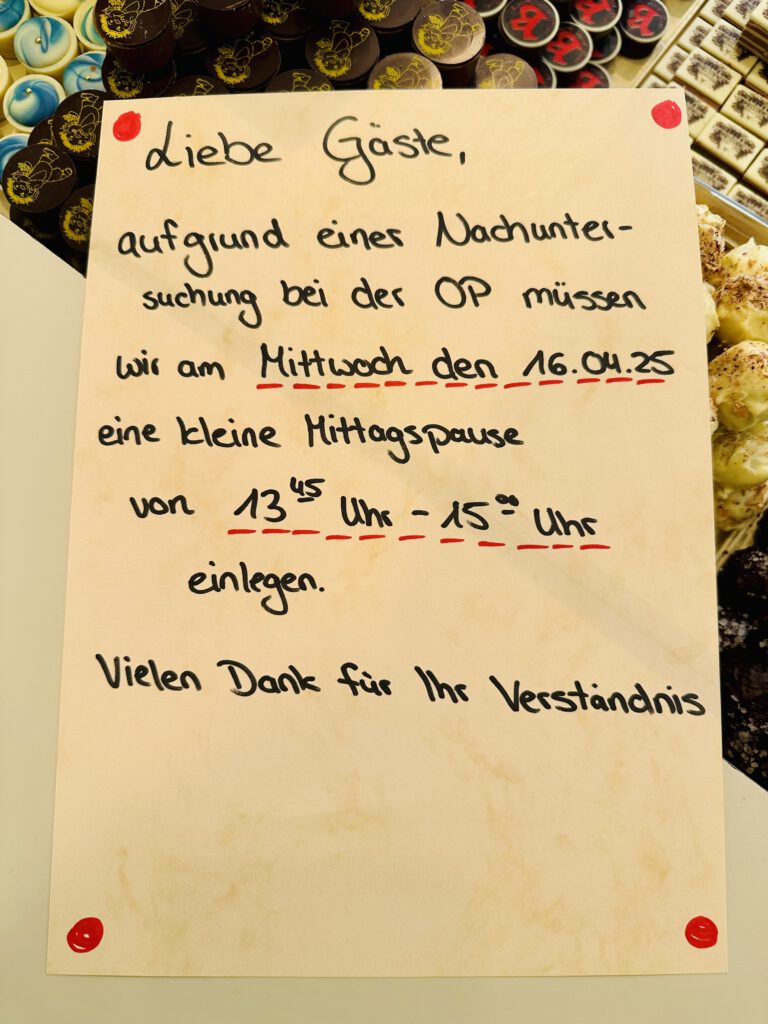 Liebe Gäste,
aufgrund einer Nachunter-
suchung bei der OP müssen
wir am Mittwoch den 16.04.25
eine kleine Mittagspause
von 13 45 Uhr - 15 00 Uhr
einlegen.
Vielen Dank für Ihr Verständnis